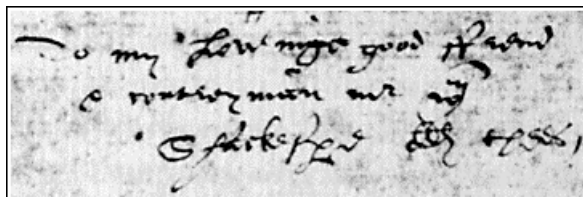 To my Loveinge good ffrend
& contreyman mr wm
Shackespere thees